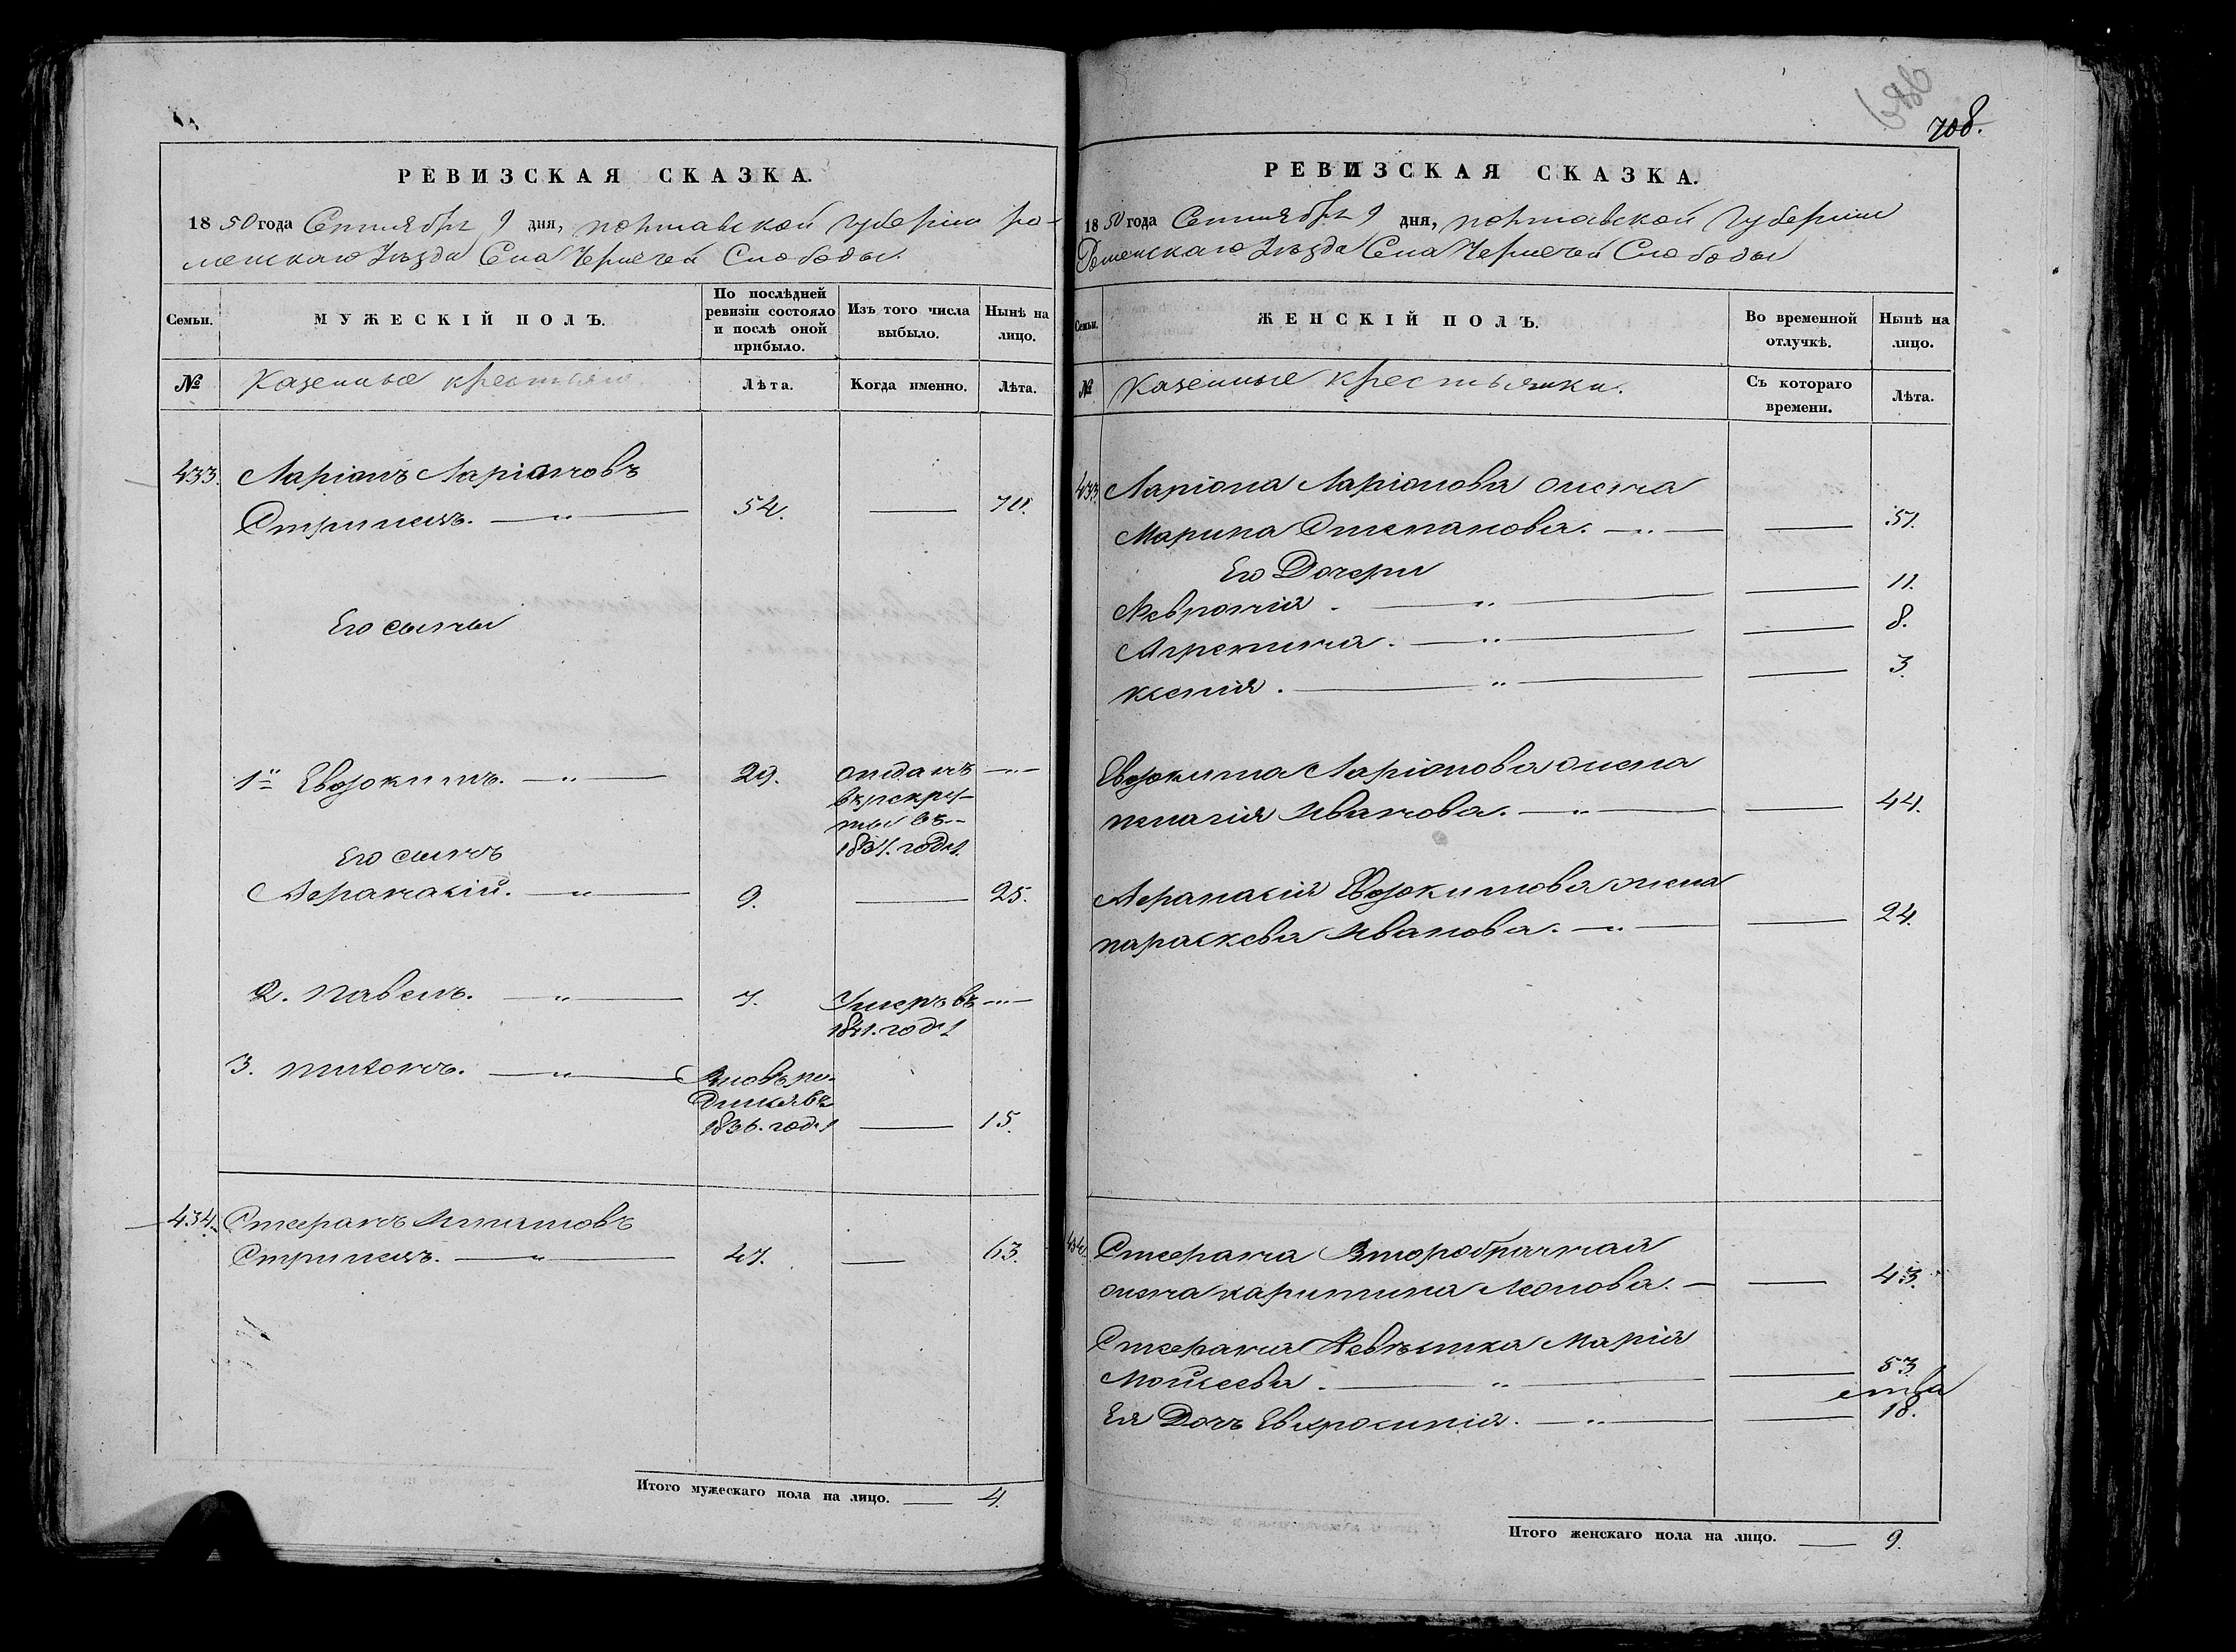 РЕВИЗСКАЯ СКАЗКА.
1850 года Сентября 9 дня, полтавской губерніи ро-
менскаго Уѣзда Села Чернечей Слободы
Семьи.
МУЖЕСКІЙ ПОЛЪ.
По послѣдней ревизіи состояло и послѣ оной прибыло.
Изъ того числа выбыло.
Нынѣ на лицо.
№
Казенные крестьяне
Лѣта.
Когда именно.
Лѣта.
433. Ларіонъ Ларіоновъ
Стрилецъ. 54. 70.
Его сыны
1й Евдокимъ. 29. отданъ
въ рекру-
ты въ
1834. годѣ
Его сынъ
Афанасій. 9. 25.
2. павелъ. 7. Умеръ въ
1841. годѣ
3. тихонъ. Вновь ро-
дился въ
1836. годѣ 15.
434. Стефанъ Игнатовъ
Стрилецъ. 47. 63.
Итого мужескаго пола на лицо. 4.
708.
РЕВИЗСКАЯ СКАЗКА.
1850 года Сентября 9 дня, полтавской Губерніи
Роменскаго Уѣзда Села Чернечей Слободы
Семьи.
ЖЕНСКІЙ ПОЛЪ.
Во временной отлучкѣ.
Нынѣ на лицо.
№
Казенные крестьянки.
Съ котораго времени.
Лѣта.
433. Ларіона Ларіонова жена
Марина Степанова. 51.
Его Дочери
Февронія. 11.
Агрепина. 8.
ксенія. 3.
Евдокима Ларіонова жена
пелагія Иванова. 44.
Афанасія Евдокимова жена
параскева Иванова. 24.
434. Стефана Второбрачная
жена харитина Леонова. 43.
Стефана Невѣстка Марія
Мойсеева. 53.
Ея Дочь Евфросинія. 18.
Итого женскаго пола на лицо. 9.